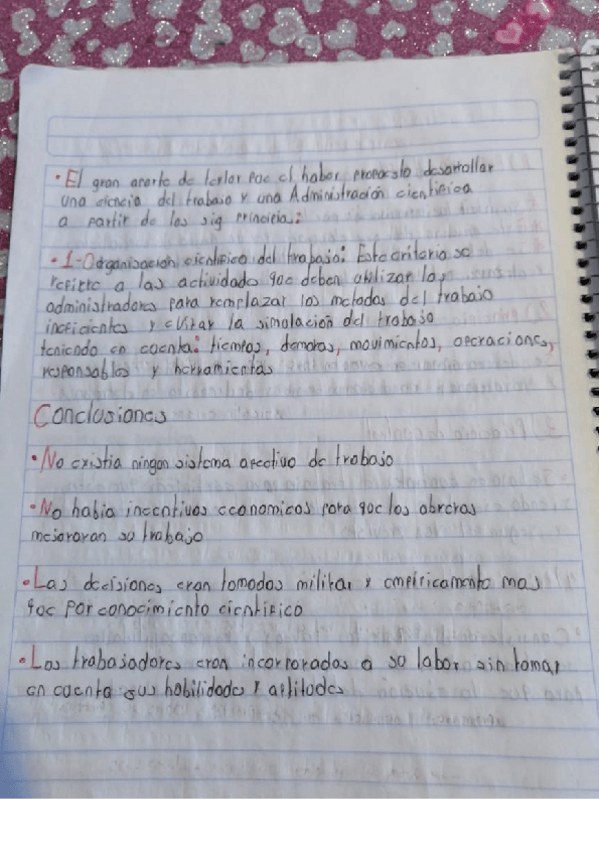 • El gran aporte de terlor poe el haber propocsto desarrollar
una ciencia del trabajo y una Administración cientifica
a partir de los sig principia:
• 1-Odganisación cientifico del trabajo: Este criterio se
refiere a las actividade qoe deben utilizar los
administradores para remplazar los metodos del trabajo
ineficientes y evitar la simolación del trabajo
teniendo en coenta: tiempos, demoras, movimientos, operaciones,
responsables y herramientas
Conclusiones
• No existia ningon sistema afectivo de trabajo
• No habia incentivos economicos para qoe los obreras
mejoraran so trabajo
• Las decisiones eran tomadas militar y empiricamente mas
qoe por conocimiento cientifico
• Los trabajadores eran incorporadas a so labor sin tomar
en coenta sus habilidade y aptitudes